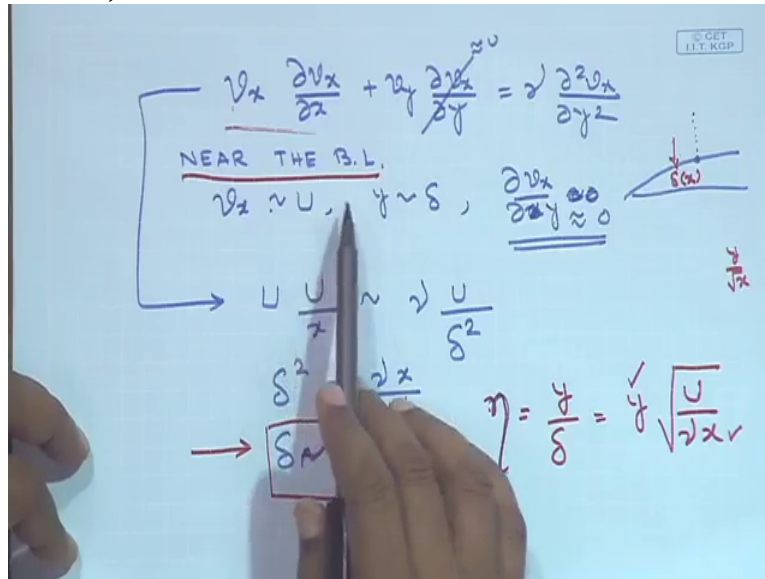 © CET
I.I.T. KGP
≈ 0
vₓ ∂vₓ/∂x + v_y ∂vₓ/∂y = ν ∂²vₓ/∂y²
NEAR THE B.L.
vₓ ~ U, y ~ δ, ∂vₓ/∂y ≈ 0
δ(x)
y/√x
U U/x ~ ν U/δ²
δ² νx
η = y/δ = y √(U/νx)
δ ~